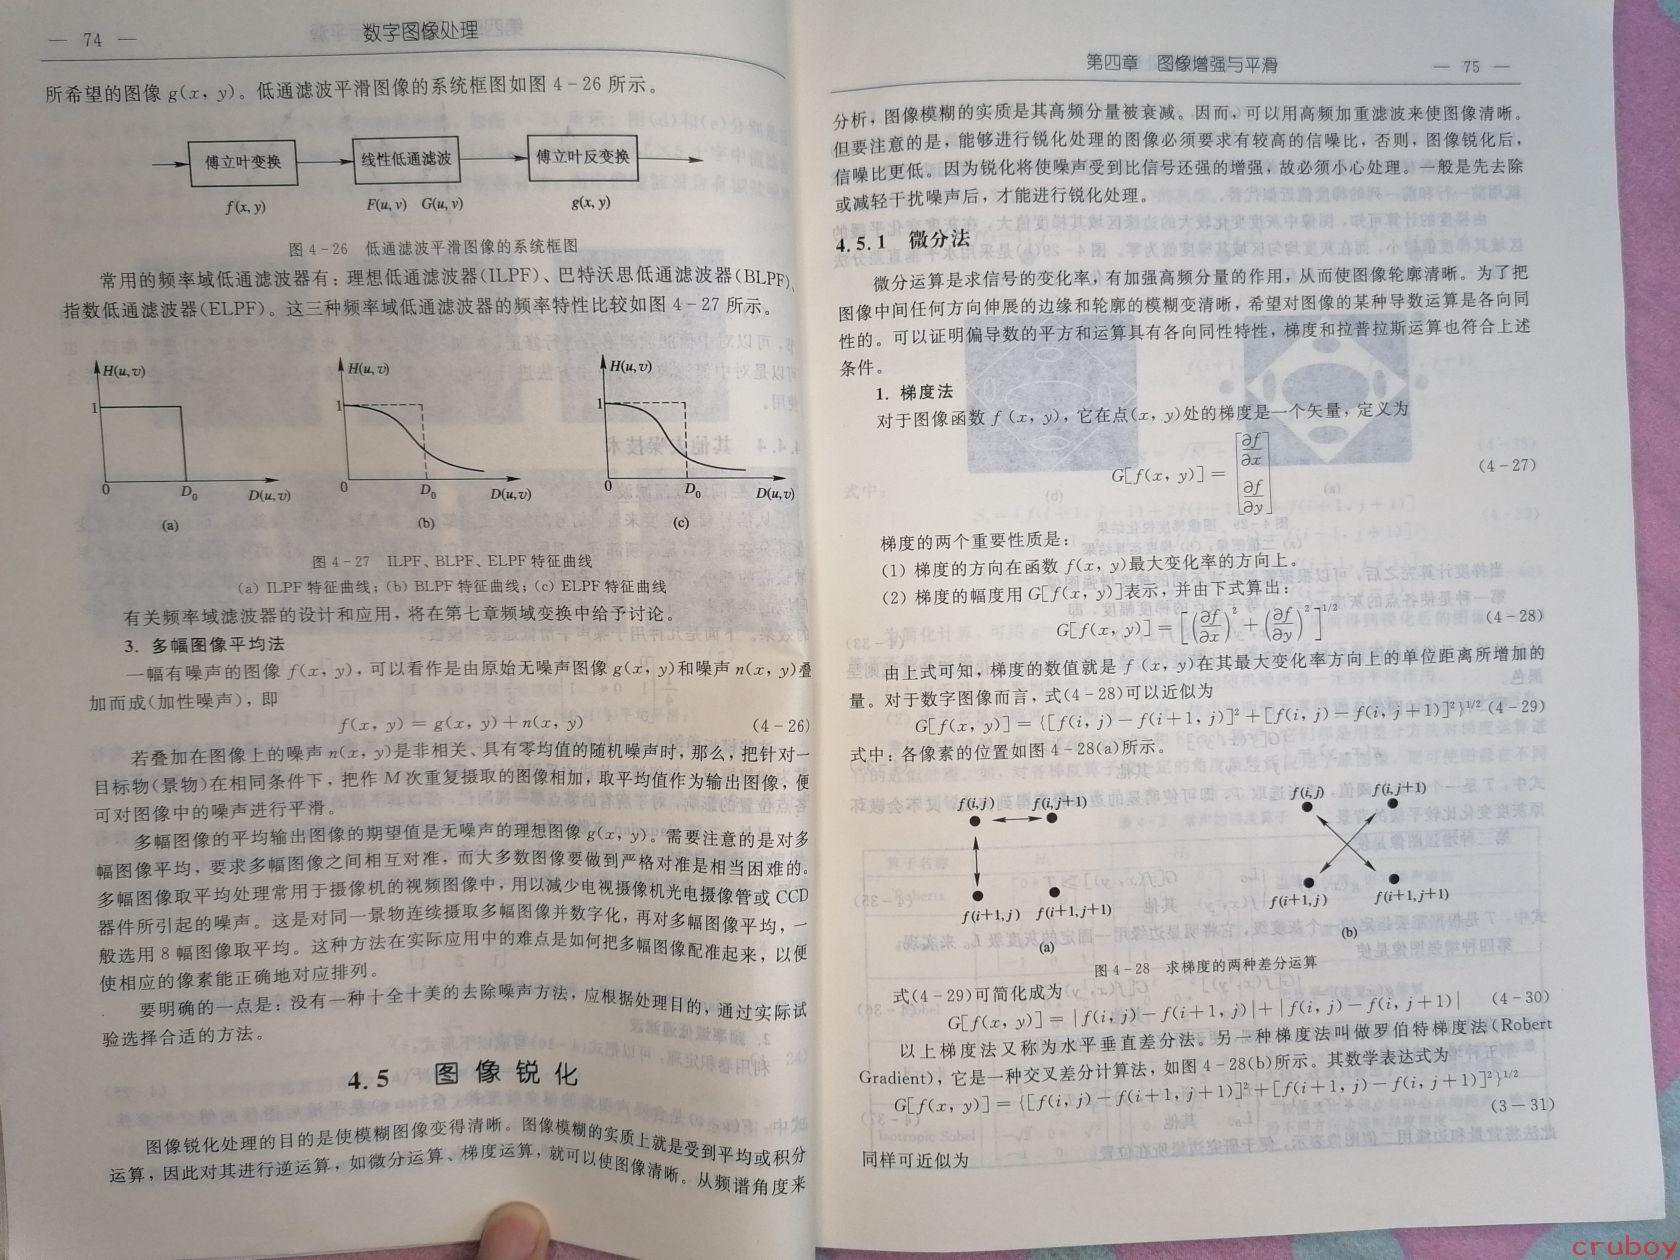 — 74 —
数字图像处理
所希望的图像 g(x, y)。低通滤波平滑图像的系统框图如图 4-26 所示。
傅立叶变换
线性低通滤波
傅立叶反变换
f(x, y)
F(u, v) G(u, v)
g(x, y)
图 4-26 低通滤波平滑图像的系统框图
常用的频率域低通滤波器有:理想低通滤波器(ILPF)、巴特沃思低通滤波器(BLPF)、
指数低通滤波器(ELPF)。这三种频率域低通滤波器的频率特性比较如图 4-27 所示。
H(u, v)
1
0
D₀
D(u, v)
(a)
H(u, v)
1
0
D₀
D(u, v)
(b)
H(u, v)
1
0
D₀
D(u, v)
(c)
图 4-27 ILPF、BLPF、ELPF 特征曲线
(a) ILPF 特征曲线; (b) BLPF 特征曲线; (c) ELPF 特征曲线
有关频率域滤波器的设计和应用,将在第七章频域变换中给予讨论。
3. 多幅图像平均法
一幅有噪声的图像 f(x, y),可以看作是由原始无噪声图像 g(x, y)和噪声 n(x, y)叠
加而成(加性噪声),即
f(x, y) = g(x, y)+n(x, y) (4-26)
若叠加在图像上的噪声 n(x, y)是非相关、具有零均值的随机噪声时,那么,把针对一
目标物(景物)在相同条件下,把作 M 次重复摄取的图像相加,取平均值作为输出图像,便
可对图像中的噪声进行平滑。
多幅图像的平均输出图像的期望值是无噪声的理想图像 g(x, y)。需要注意的是对多
幅图像平均,要求多幅图像之间相互对准,而大多数图像要做到严格对准是相当困难的。
多幅图像取平均处理常用于摄像机的视频图像中,用以减少电视摄像机光电摄像管或 CCD
器件所引起的噪声。这是对同一景物连续摄取多幅图像并数字化,再对多幅图像平均,一
般选用 8 幅图像取平均。这种方法在实际应用中的难点是如何把多幅图像配准起来,以便
使相应的像素能正确地对应排列。
要明确的一点是:没有一种十全十美的去除噪声方法,应根据处理目的,通过实际试
验选择合适的方法。
4.5 图像锐化
图像锐化处理的目的是使模糊图像变得清晰。图像模糊的实质上就是受到平均或积分
运算,因此对其进行逆运算,如微分运算、梯度运算,就可以使图像清晰。从频谱角度来
第四章 图像增强与平滑
— 75 —
分析,图像模糊的实质是其高频分量被衰减。因而,可以用高频加重滤波来使图像清晰。
但要注意的是,能够进行锐化处理的图像必须要求有较高的信噪比,否则,图像锐化后,
信噪比更低。因为锐化将使噪声受到比信号还强的增强,故必须小心处理。一般是先去除
或减轻干扰噪声后,才能进行锐化处理。
4.5.1 微分法
微分运算是求信号的变化率,有加强高频分量的作用,从而使图像轮廓清晰。为了把
图像中间任何方向伸展的边缘和轮廓的模糊变清晰,希望对图像的某种导数运算是各向同
性的。可以证明偏导数的平方和运算具有各向同性特性,梯度和拉普拉斯运算也符合上述
条件。
1. 梯度法
对于图像函数 f(x, y),它在点(x, y)处的梯度是一个矢量,定义为
G[f(x, y)] = [∂f/∂x ∂f/∂y] (4-27)
梯度的两个重要性质是:
(1) 梯度的方向在函数 f(x, y)最大变化率的方向上。
(2) 梯度的幅度用 G[f(x, y)]表示,并由下式算出:
G[f(x, y)] = [(∂f/∂x)² + (∂f/∂y)²]^1/2 (4-28)
由上式可知,梯度的数值就是 f(x, y)在其最大变化率方向上的单位距离所增加的
量。对于数字图像而言,式(4-28)可以近似为
G[f(x, y)] = {[f(i, j)-f(i+1, j)]²+[f(i, j)-f(i, j+1)]²}^1/2 (4-29)
式中:各像素的位置如图 4-28(a)所示。
f(i,j) f(i,j+1)
f(i+1,j) f(i+1,j+1)
(a)
f(i,j) f(i,j+1)
f(i+1,j) f(i+1,j+1)
(b)
图 4-28 求梯度的两种差分运算
式(4-29)可简化成为
G[f(x, y)] = |f(i, j)-f(i+1, j)|+|f(i, j)-f(i, j+1)| (4-30)
以上梯度法又称为水平垂直差分法。另一种梯度法叫做罗伯特梯度法(Robert
Gradient),它是一种交叉差分计算法,如图 4-28(b)所示。其数学表达式为
G[f(x, y)] = {[f(i, j)-f(i+1, j+1)]²+[f(i+1, j)-f(i, j+1)]²}^1/2
(3-31)
同样可近似为
cruboy